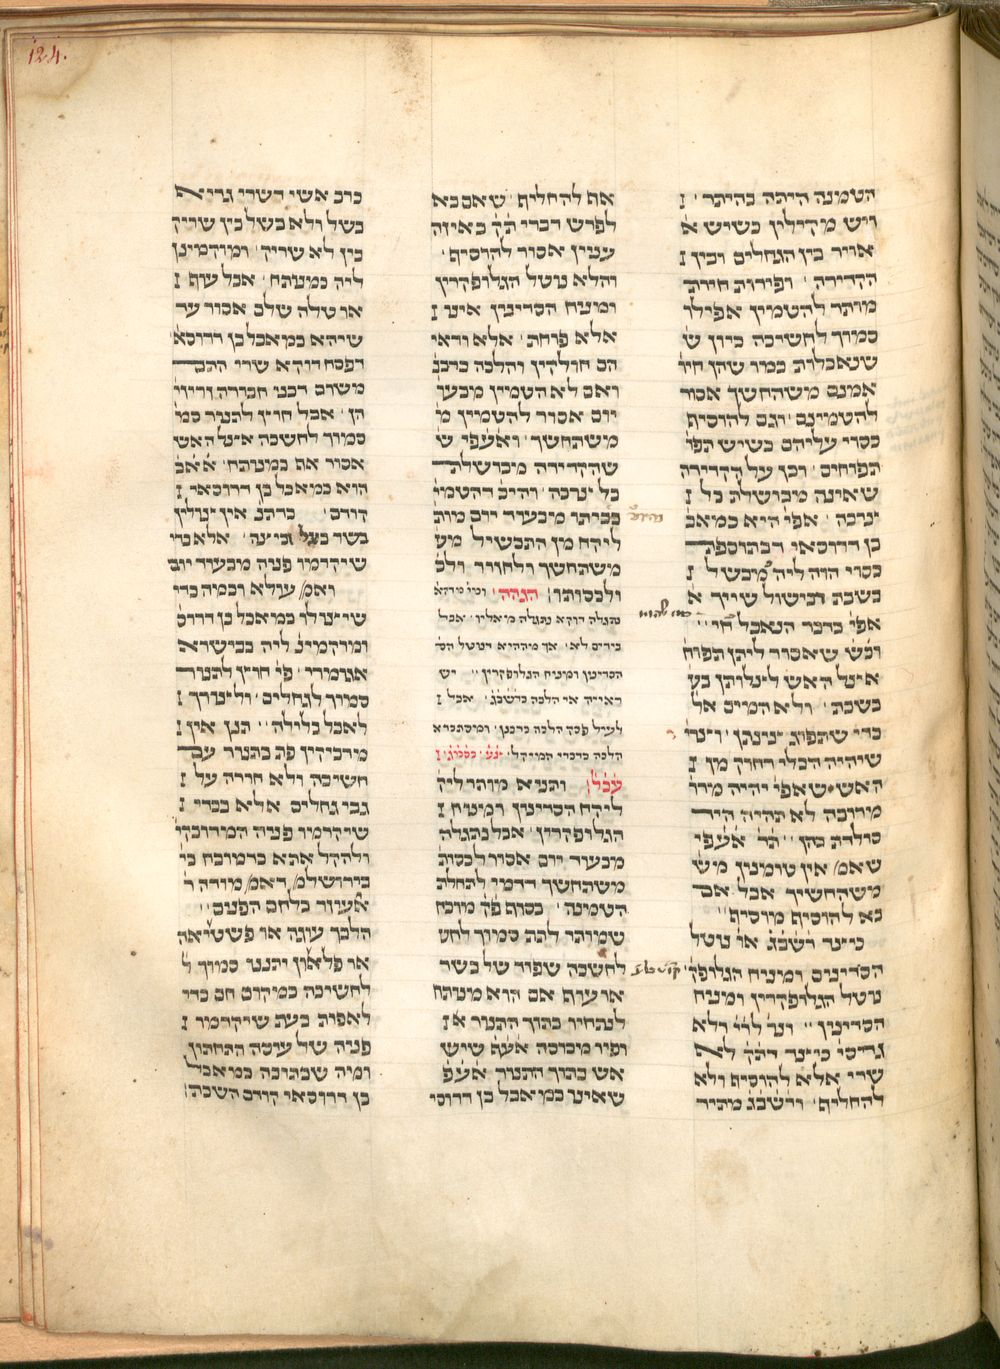 124.
הטמנה היתה בהיתר׳
ויש מקילין כשיש א
אויר בין הגחלים ובין
הקדירה׳ ופירות חיות
מותר להטמין אפילו
סמוך לחשיכה כיון ש
שנאכלות כמו שהן חיו
אמנם משהחשך אסור
להטמינם׳ וגם להוסיף
כסוי עליהם כשיש תפו
תפוחים׳ וכן על הקדירה
שאינה מבושלת כל
צרכה׳ אפי׳ היא כמאכ
בן דרוסאי דבתוספת
כסוי הוה ליה מבשל
בשבת דבישול שייך א
אפי׳ בדבר הנאכל חי׳
וכש׳ שאסור ליתן תפוח
אצל האש לצלותן בע
בשבת׳ ולא המים אל
כדי שתפוג צינתן׳ וצרי
שיהיה הכלי רחוק מן
האש שאפי׳ יהיה מרו
מרובה לא תהיה היד
סולדת בהן׳ תר׳ אעפי׳
שאמ׳ אין טומנין מש
משהחשיך אבל אם
בא להוסיף מוסיף׳
כיצד רשבג׳ או׳ נוטל
הסדינים ומניח הגלופק׳
נוטל הגלופקרין ומניח
הסדינין׳
גרסי׳ כיצד דתק׳ לא
שרי אלא להוסיף ולא
להחליף׳ ורשבג׳ מתיר
אף להחליף׳ שאם בא
לפרש דברי תק׳ באיזה
ענין אסור להוסיף׳
והלא נוטל הגלופקרין
ומניח הסדינין אינו
אלא פוחת׳ אלא ודאי
הם חולקין והלכה כרבנ
ואם לא הטמין מבעו׳
יום אסור להטמין מ
משהחשך׳ ואעפי ש
שהקדירה מבושלת
כל צרכה׳ והיכ דהטמי
בביתו מבעוד יום מות
ליקח מן התבשיל מע
משהחשך ולחזור ולכ
ולכסותו׃ הגהה׳
נתגלה דוקא נתגלה מאליו׳ אבל
בידים לא׳ אך מההיא דנוטל הס
הסדינין ומניח הגלופקרין׳ יש
ראייה אי הלכה כרשבג׳ אבל
לעיל פסק הלכה כרבנן׳ ומסתברא
הלכה כדברי המיקל׳
עכל׃ והתניא מותר ליק
ליקח הסדינין ומניח
הגלופקרין׳ אבל נתגלה
מבעוד יום אסור לכסות
משהחשך דדמי לתחלת
הטמנה׳ בסוף פק׳ מוכח
שמותר לתת סמוך לחש
לחשכה שפוד של בשר
או עוף אם הוא מנותח
לנתחיו בתוך התנור
ופיו מכוסה אעפ שיש
אש בתוך התנור אעפ
שאינו כמאכל בן דרוסי
כרב אשי דשרי גדיא
בשל ולא בשל בין שריק
בין לא שריק׳ ומוקמינן
ליה במנותח׳ אבל עוף
או טלה שלם אסור עד
שיהא כמאכל בן דרוסא
דפסח דוקא שרי התם
משום דבני חבורה זריזי
הן׳ אבל חוץ לתנור סמ
סמוך לחשכה אצל האש
אסור אף במנותח׳ אאכ
הוא כמאכל בן דרוסאי
קודם׳ כדתנ׳ אין צולין
בשר בצל וביצה׳ אלא כדי
שיקדמו פניה מבעוד יום
ואמ׳ עולא וכמה כדי
שיצולו כמאכל בן דרוס
ומוקמינן ליה בבישרא
אגומרי׳ פי׳ חוץ לתנור
סמוך לגחלים׳ ולצורך
לאכל בלילה׳ תנן אין
מדביקין פת בתנור עם
חשיכה ולא חררה על
גבי גחלים אלא בכדי
שיקרמו פניה המדובקי
ולהקל אתא כדמוכח בי
בירושלמ׳ דאמ׳ מודה ר׳
אליעזר בלחם הפנים׳
הלכך עוגה או פשטידה
או פלאדון יתננו סמוך
לחשיכה במקום חם כדי
לאפות בעת שיקדמו
פניה של עיסה התחתון
ומה שבתוכה כמאכל
בן דרוסאי קודם השבת׃